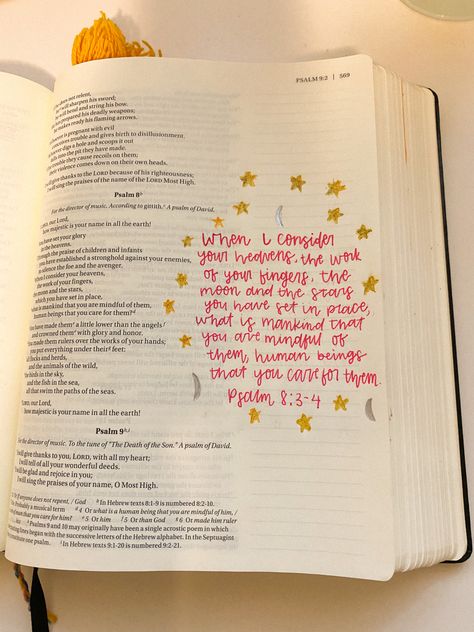 PSALM 9:2 | 569
does not relent,
will sharpen his sword;
will bend and string his bow.
has prepared his deadly weapons;
makes ready his flaming arrows.
is pregnant with evil
trouble and gives birth to disillusionment.
digs a hole and scoops it out
falls into the pit they have made.
trouble they cause recoils on them;
violence comes down on their own heads.
will give thanks to the LORD because of his righteousness;
will sing the praises of the name of the LORD Most High.
Psalm 8
For the director of music. According to gittith. A psalm of David.
our Lord,
how majestic is your name in all the earth!
have set your glory
in the heavens.
Through the praise of children and infants
you have established a stronghold against your enemies,
to silence the foe and the avenger.
I consider your heavens,
the work of your fingers,
moon and the stars,
which you have set in place,
what is mankind that you are mindful of them,
human beings that you care for them?
You have made them a little lower than the angels
and crowned them with glory and honor.
You made them rulers over the works of your hands;
you put everything under their feet:
flocks and herds,
and the animals of the wild,
the birds in the sky,
and the fish in the sea,
all that swim the paths of the seas.
our Lord,
how majestic is your name in all the earth!
Psalm 9
For the director of music. To the tune of "The Death of the Son." A psalm of David.
I will give thanks to you, LORD, with all my heart;
I will tell of all your wonderful deeds.
I will be glad and rejoice in you;
I will sing the praises of your name, O Most High.
When I consider
your heavens, the work
of your fingers, the
moon and the stars
you have set in place,
what is mankind that
you are mindful of
them, human beings
that you care for them.
Psalm 8:3-4
If anyone does not repent, / God b In Hebrew texts 8:1-9 is numbered 8:2-10.
Probably a musical term 4 Or what is a human being that you are mindful of him, /
that you care for him? 5 Or him 5 Or than God 6 Or made him ruler
Psalms 9 and 10 may originally have been a single acrostic poem in which
lines began with the successive letters of the Hebrew alphabet. In the Septuagint
constitute one psalm. In Hebrew texts 9:1-20 is numbered 9:2-21.